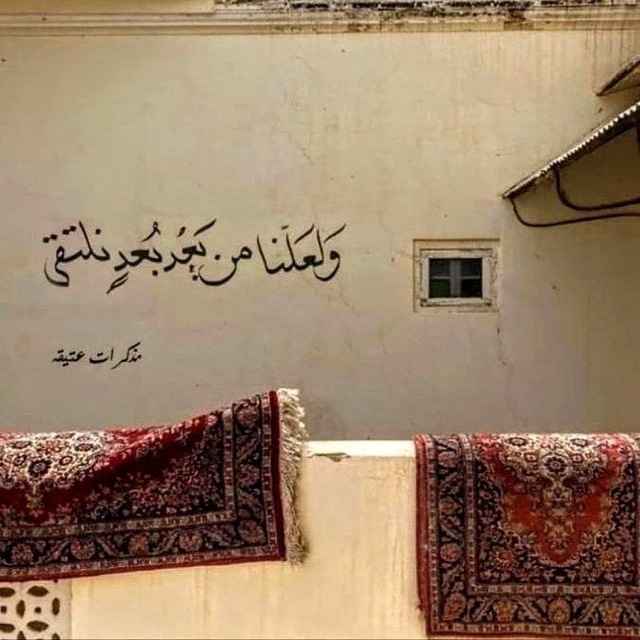 وَلعَلّنا من بَعْدِ بُعدٍ نلتقي
مذكرات عتيقه